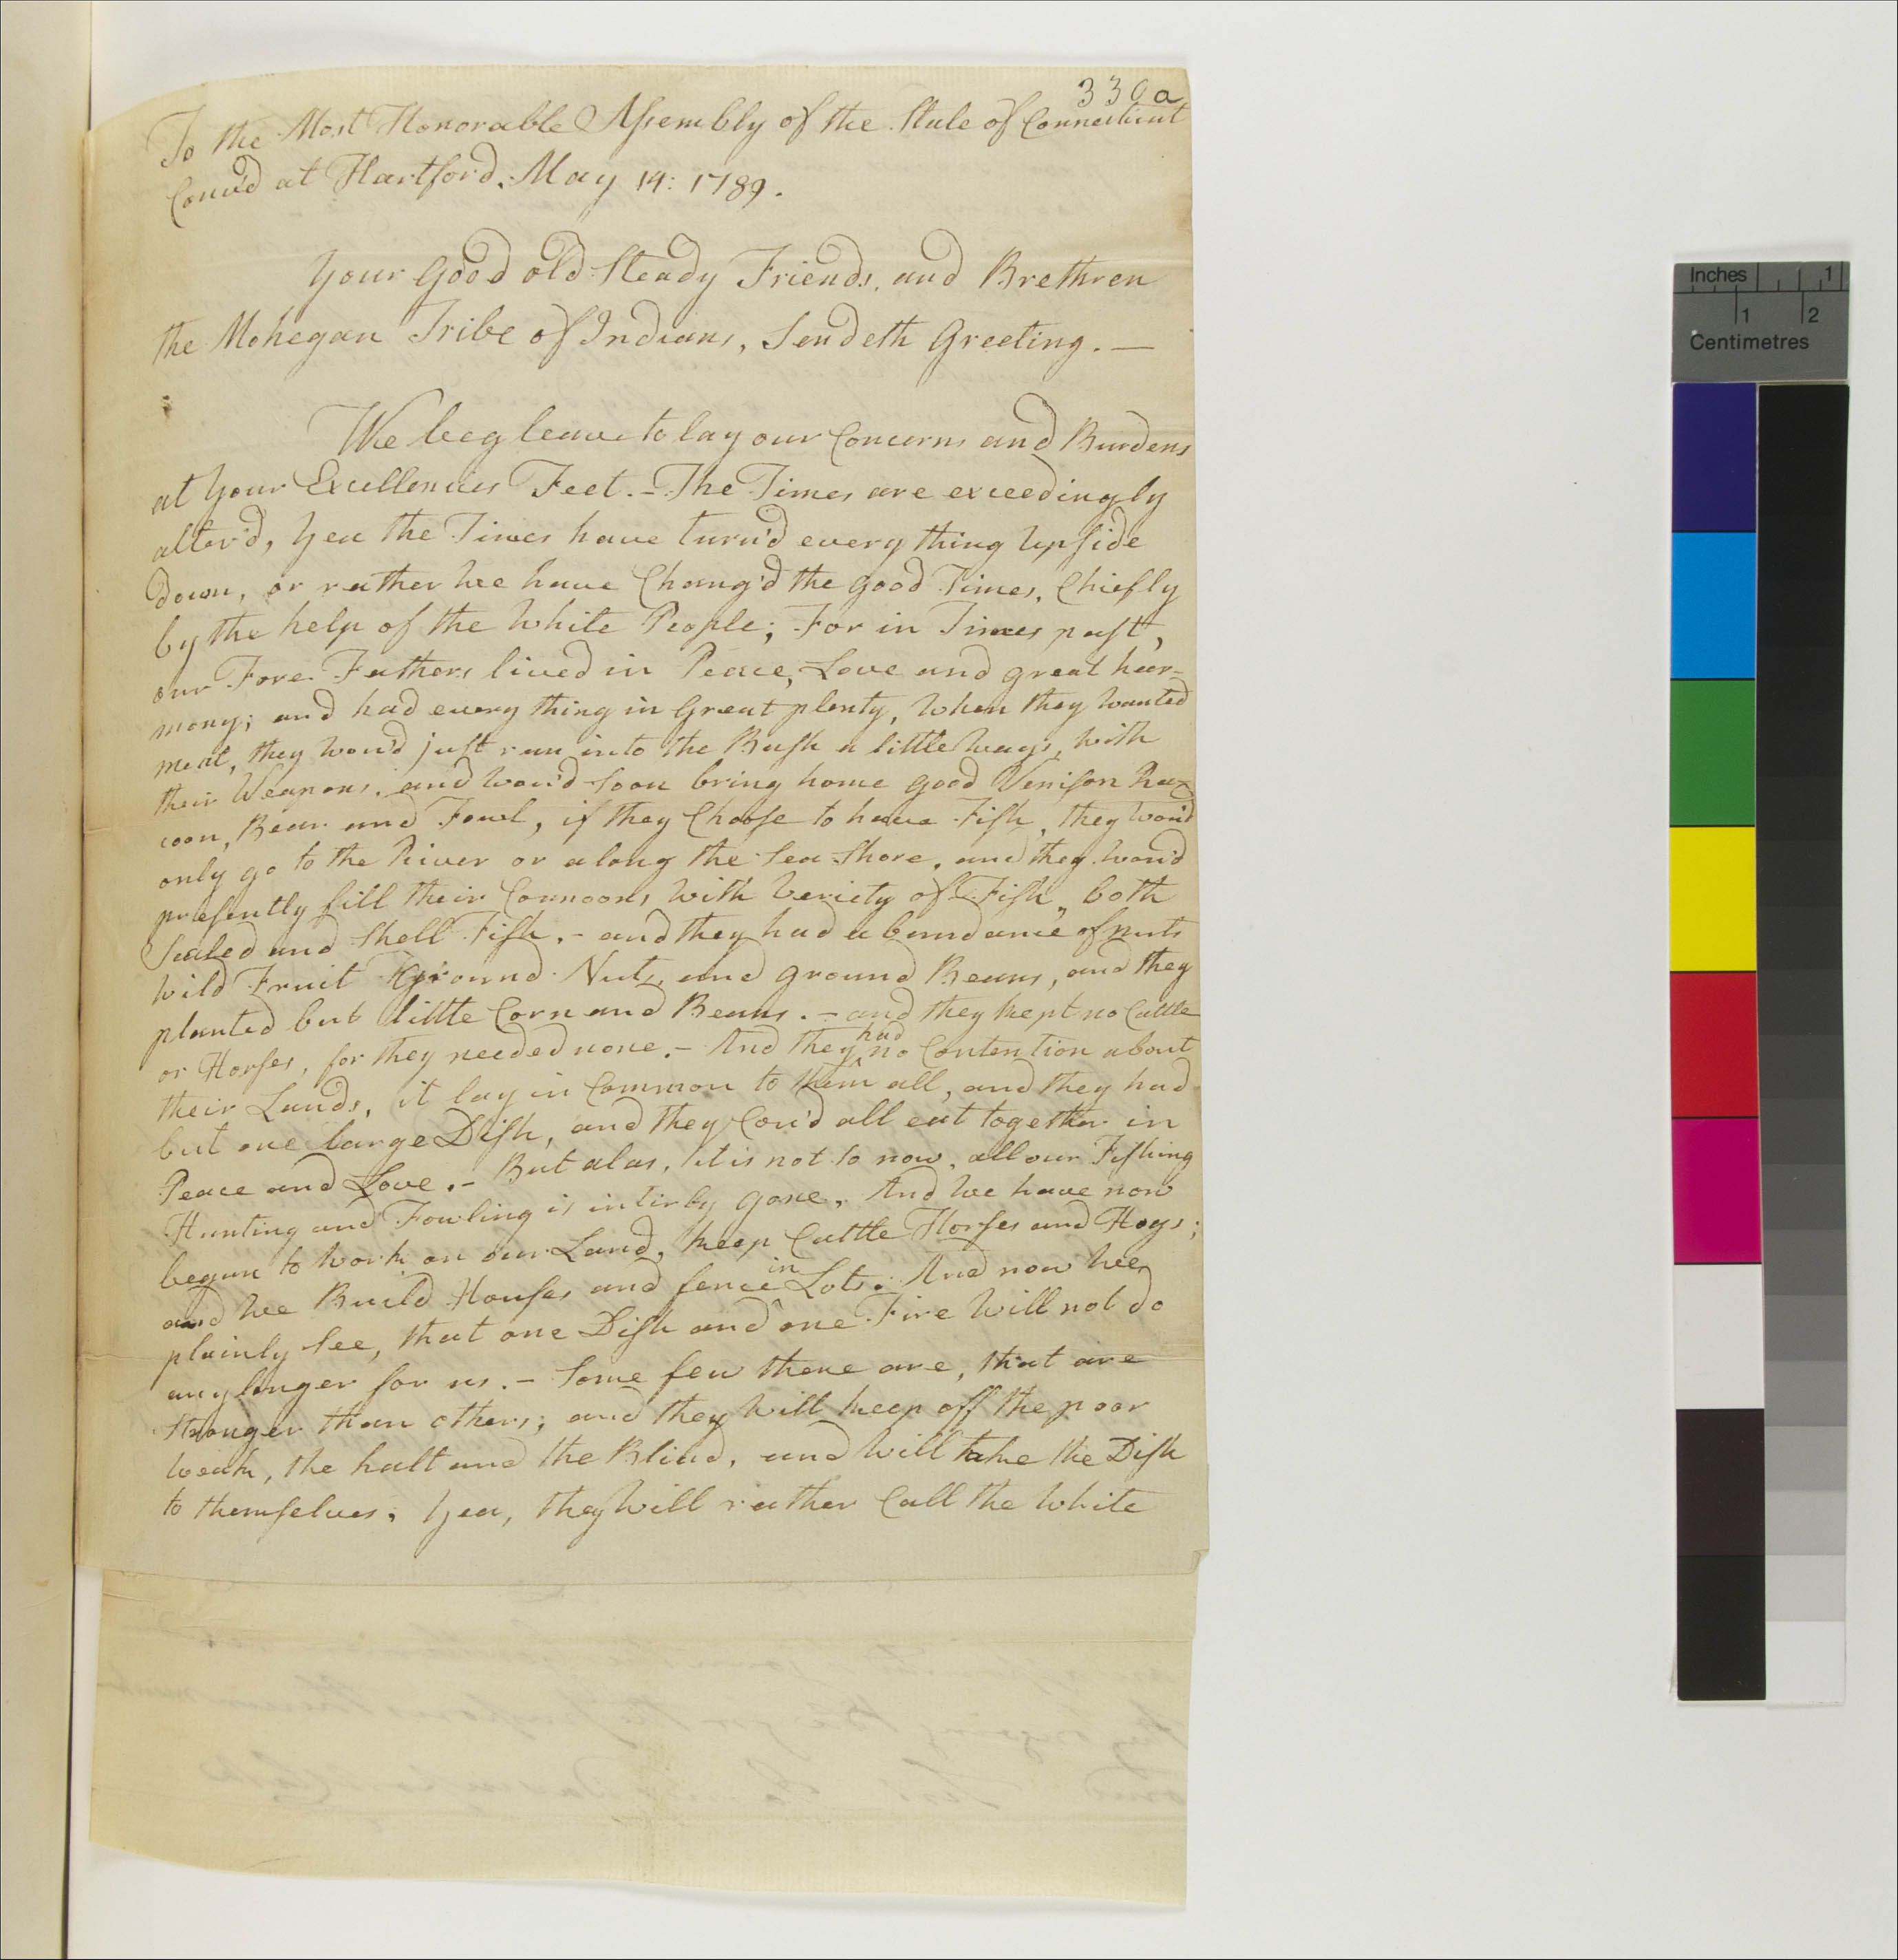 330a
To the Most Honorable Assembly of the State of Connecticut
Conv'd at Hartford, May 14: 1789.
Your Good old Steady Friends, and Brethren
the Mohegan Tribe of Indians, Sendeth Greeting. —
We beg leave to lay our Concerns and Burdens
at Your Excellencies Feet. - The Times are exceedingly
alter'd, Yea the Times have turn'd every thing upside
down, or rather we have Chang'd the good Times, Chiefly
by the help of the White People; For in Times past,
our Fore Fathers lived in Peace, Love and great har-
mony; and had every thing in Great plenty, When they wanted
meat, they wou'd just run into the Bush a little ways, with
their Weapons, and wou'd soon bring home good Venison Rac-
coon, Bear and Fowl, if they Choose to have Fish, they wou'd
only go to the River or along the Sea Shore, and they wou'd
presently fill their Connoons with Veriety of Fish, both
Scaled and Shell Fish. - and they had abundance of nuts
Wild Fruit Ground Nuts, and ground Beans, and they
planted but little Corn and Beans. - and they kept no Cattle
or Horses, for they needed none. - And they had no Contention about
their Lands, it lay in Common to them all, and they had
but one large Dish, and they Cou'd all eat together in
Peace and Love. - But alas, it is not so now, all our Fishing
Hunting and Fowling is intirly gone, And we have now
begun to work on our Land, keep Cattle Horses and Hogs;
and We Build Houses and fence in Lots. And now we
plainly See, that one Dish and one Fire will not do
any longer for us. - Some few there are, that are
Stronger than others; and they will keep off the poor
weak, the halt and the Blind, and will take the Dish
to themselves. Yea, they will rather Call the White
Inches 1
1 2
Centimetres